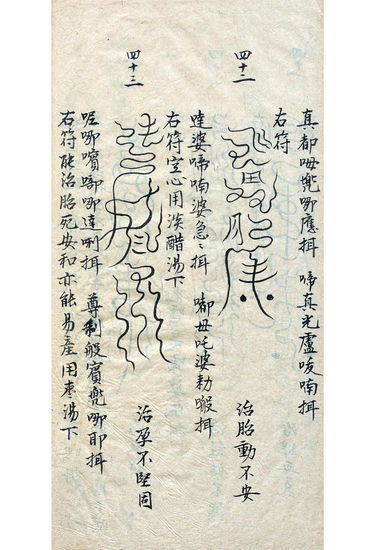 真都呣兜哪應揖　啼真光盧唆喃揖
右符
四十二
治胎動不安
達婆啼喃婆急〻揖　毋吒婆勅揖
右符空心用淡醋湯下
四十三
治孕不堅固
哪嚬哪達唎揖　尊制般賓兜哪耶揖
右符能治胎死安和亦能易產用棗湯下